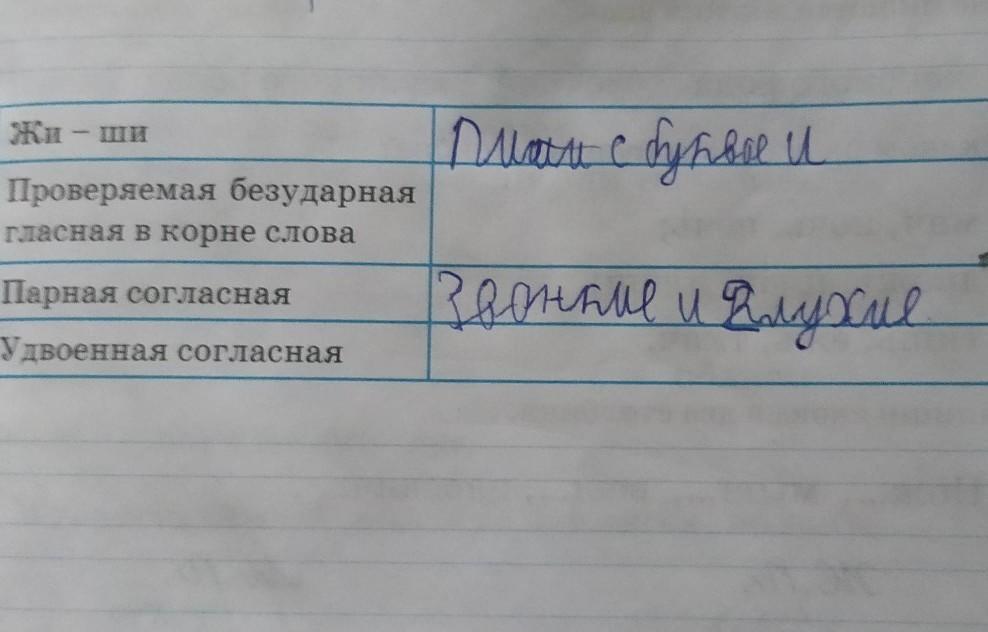 Жи – ши
Пишим с буквое и
Проверяемая безударная
гласная в корне слова
Парная согласная
Звонкие и глухие
Удвоенная согласная